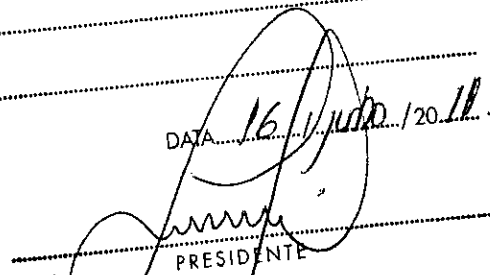 DATA 16 / junho / 20 11.
PRESIDENTE